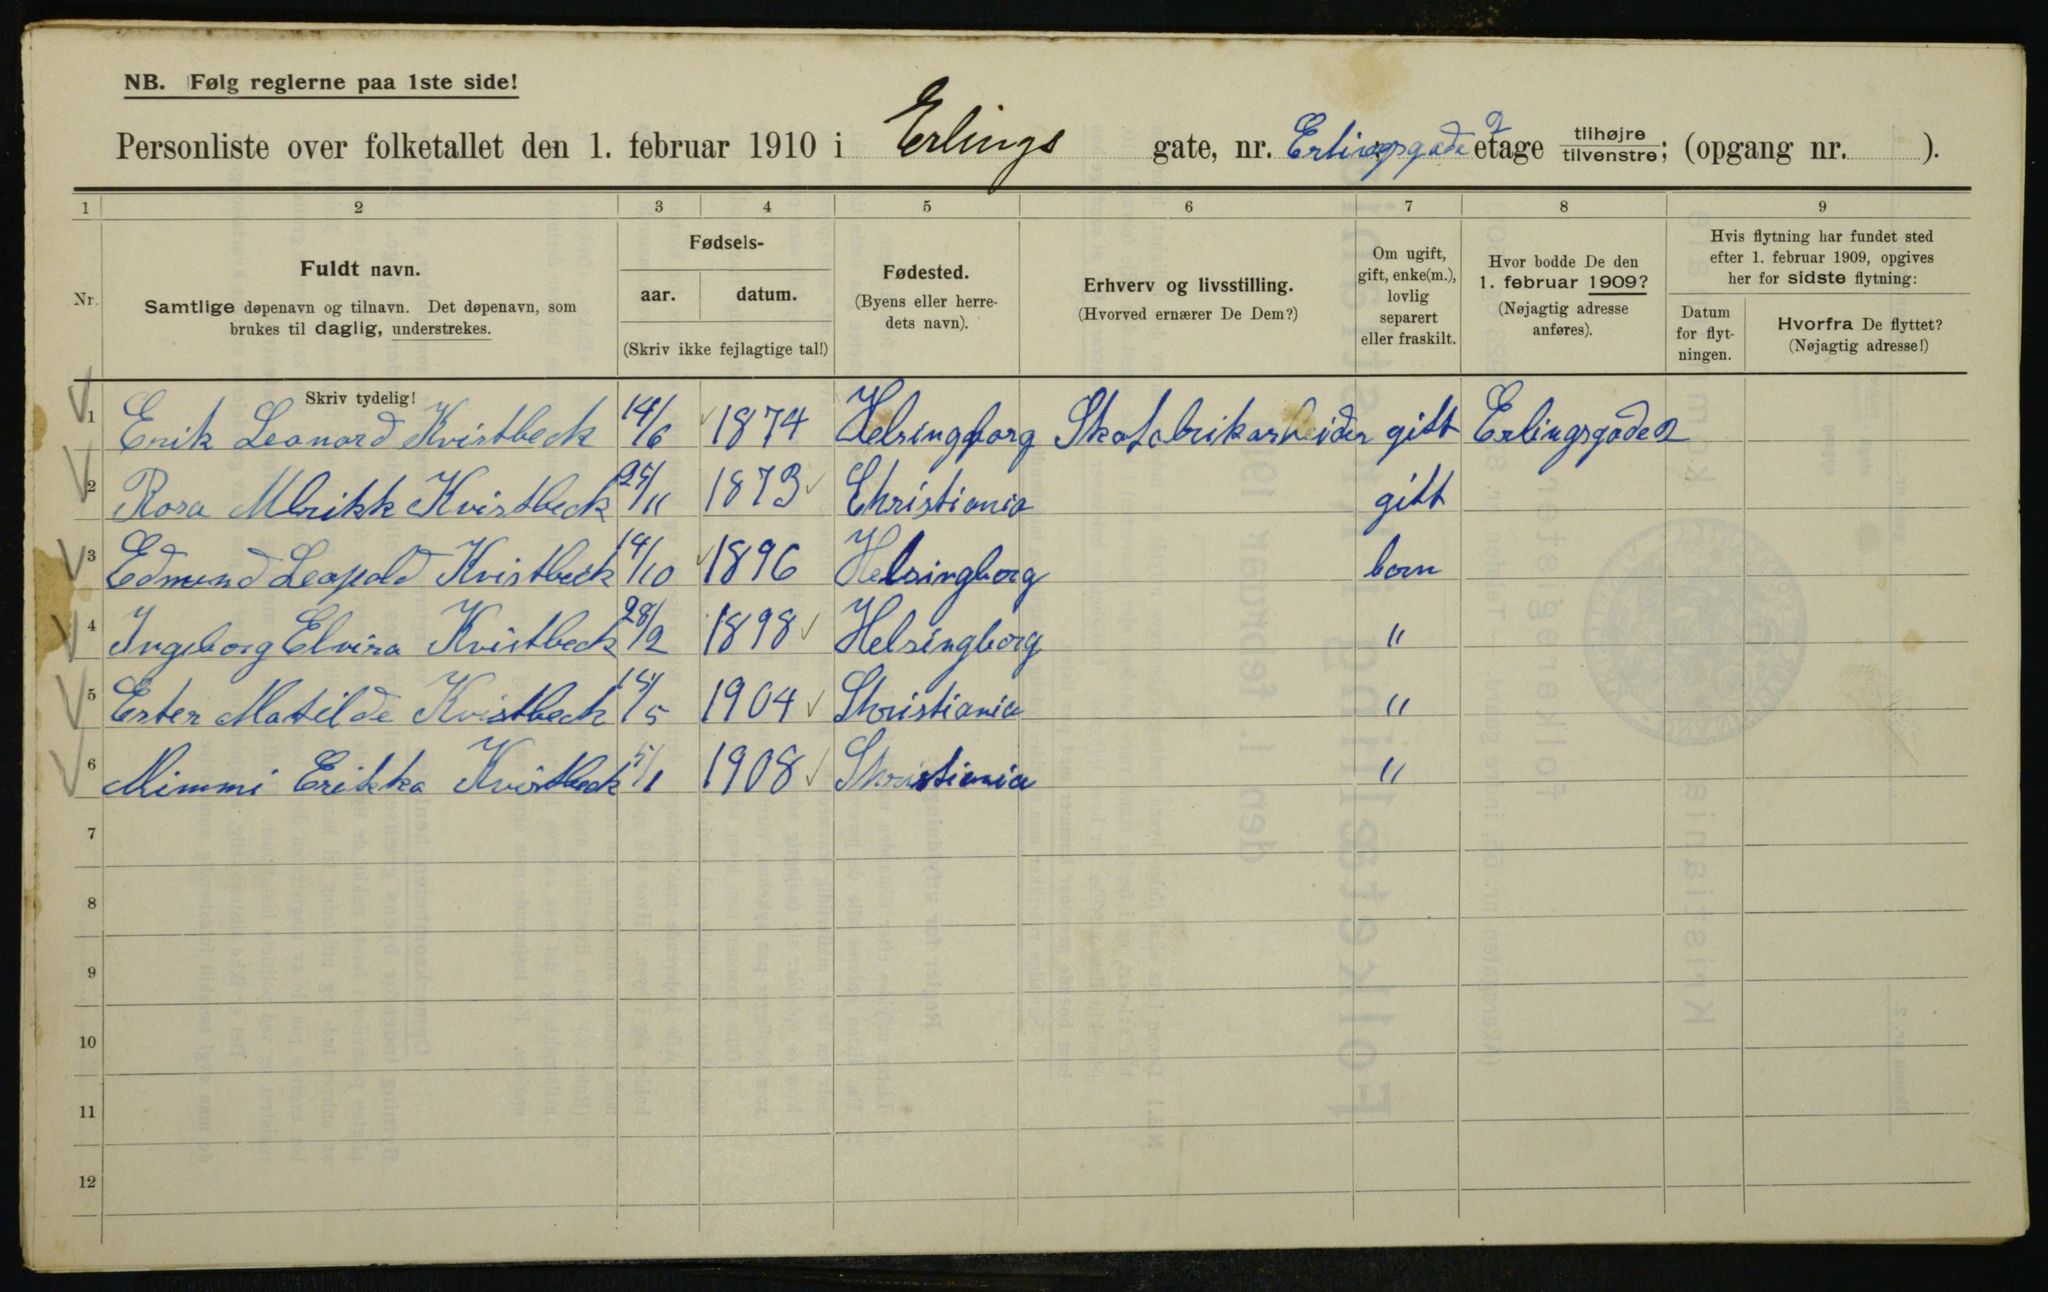 NB. Følg reglerne paa 1ste side!
Personliste over folketallet den 1. februar 1910 i Erlings gate, nr. Erlingsgade 2 etage tilhøjre tilvenstre; (opgang nr. ).
1 2 3 4 5 6 7 8 9
Nr. Fuldt navn. Samtlige døpenavn og tilnavn. Det døpenavn, som brukes til daglig, understrekes.
Fødsels- aar. datum. (Skriv ikke fejlagtige tal!)
Fødested. (Byens eller herredets navn).
Erhverv og livsstilling. (Hvorved ernærer De Dem?)
Om ugift, gift, enke(m.), lovlig separert eller fraskilt.
Hvor bodde De den 1. februar 1909? (Nøjagtig adresse anføres).
Hvis flytning har fundet sted efter 1. februar 1909, opgives her for sidste flytning:
Datum for flytningen. Hvorfra De flyttet? (Nøjagtig adresse!)
Skriv tydelig!
1 Erik Leonard Kvistbeck 14/6 1874 Helsingborg Skofabrikarbeider gift Erlingsgade 2
2 Rosa Kvistbeck /11 1873 Christiania gift
3 Edmund Leopold Kvistbeck 14/10 1896 Helsingborg born
4 Ingeborg Elvira Kvistbeck 28/2 1898 Helsingborg "
5 Ester Matilde Kvistbeck /5 1904 Christiania "
6 Mimmi Erikka Kvistbeck 5/1 1908 Christiania "
7
8
9
10
11
12